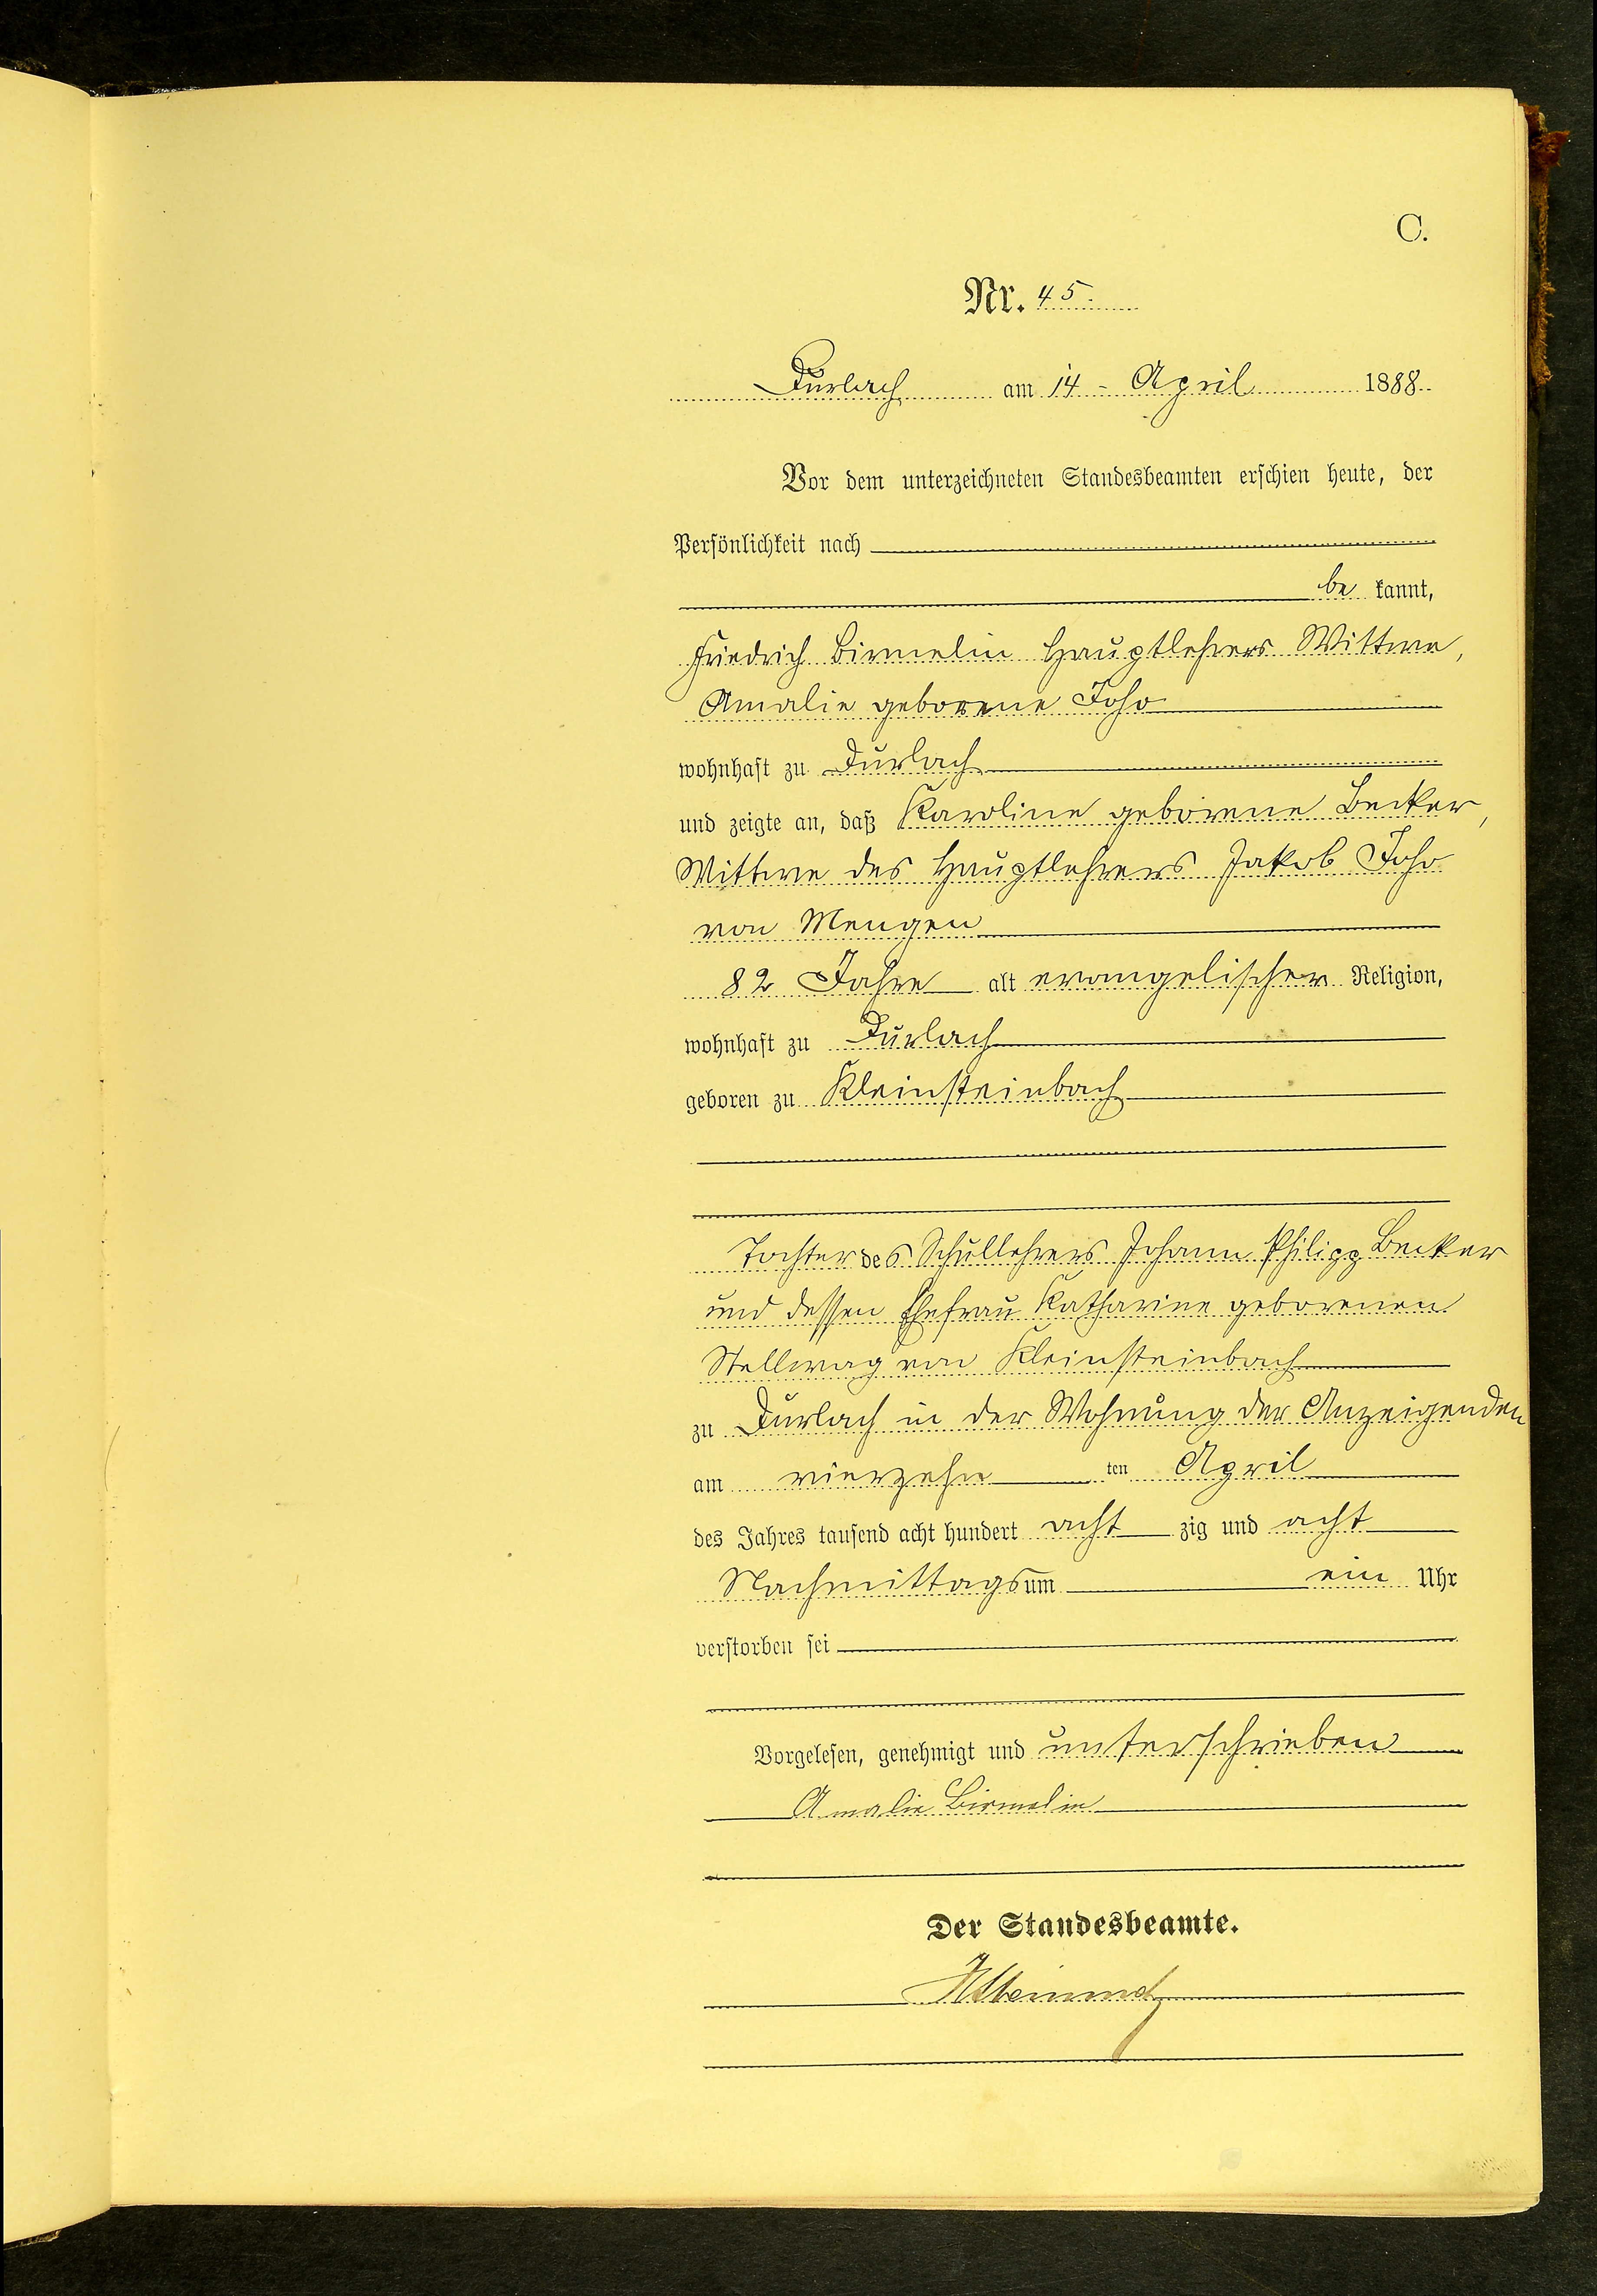 C.
Nr. 45.
Durlach am 14 - April 1888
Vor dem unterzeichneten Standesbeamten erschien heute, der
Persönlichkeit nach
be kannt,
Friedrich Birmelin Hauptlehrers Wittwe,
Amalie geborene Joho
wohnhaft zu Durlach
und zeigte an, daß Karoline geborene Becker,
Wittwe des Hauptlehrers Jakob Joho
von Mengen
82 Jahre alt evangelischer Religion,
wohnhaft zu Durlach
geboren zu Kleinsteinbach
Tochter des Schullehrers Johann Philipp Becker
und dessen Ehefrau Katharine geborenen
Stellwag von Kleinsteinbach
zu Durlach in der Wohnung der Anzeigenden
am vierzehn ten April
des Jahres tausend acht hundert acht zig und acht
Nachmittags um ein Uhr
verstorben sei
Vorgelesen, genehmigt und unterschrieben
Amalie Birmelin
Der Standesbeamte.